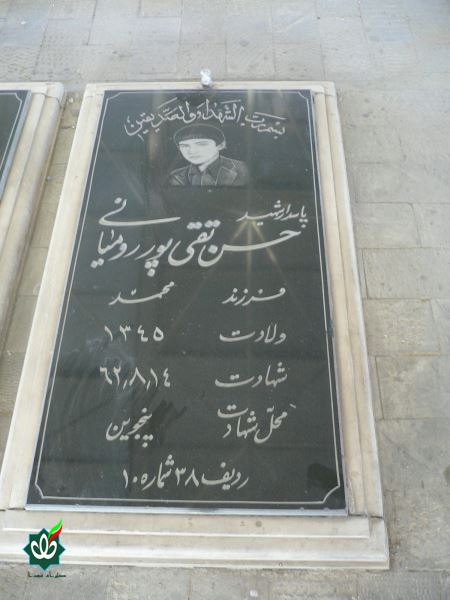 بسم رب الشهداء والصدیقین
پاسدار شهید
حسن تقی پور رومیانی
فرزند محمد
ولادت ۱۳۴۵
شهادت ۶۲٫۸٫۱۴
محل شهادت پنجوین
ردیف ۳۸ شماره ۱۰